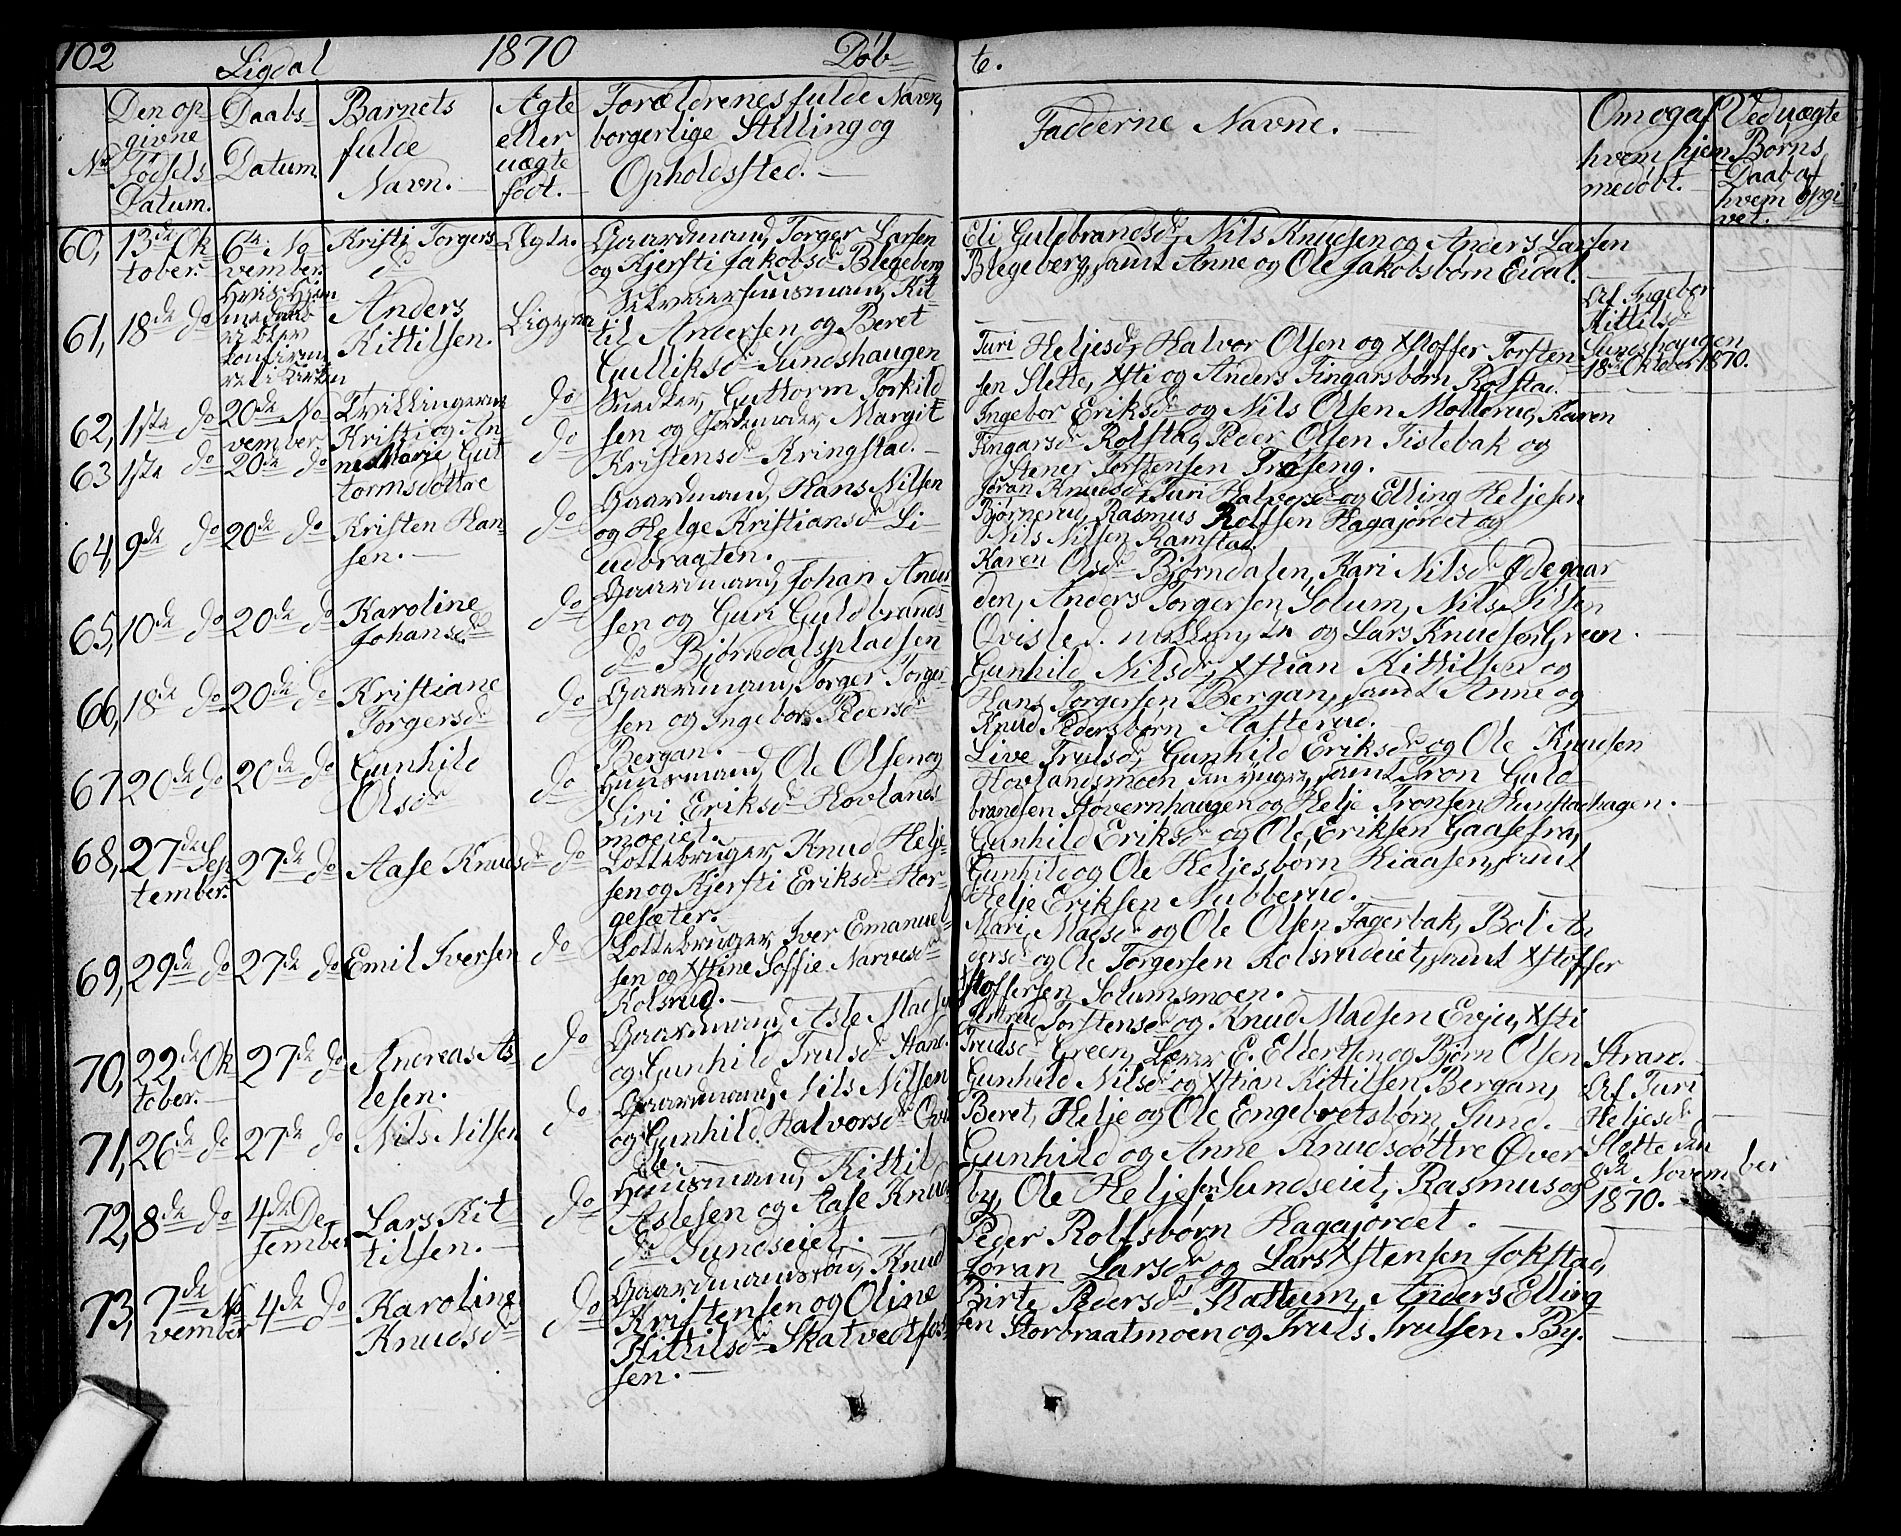 102 Sigdal 1870 Døb-
te.
No
Den op-
givne
Fødsels
Datum.
Daabs-
Datum
Barnets
fulde
Navn. —
Ægte
eller
uægte
født. —
Forældrenes fulde Navn,
borgerlige Stilling og
Opholdssted. —
Fadderne Navne. —
Om og af
hvem hjem
medøbt. —
Ved uægte
Børns
Daab af
hvem opgi-
vet.
60, 13de Ok
tober.
6te No
vember.
Kristi Torgers
dr
Ægte.
Gaardmand, Torger Larsen
og Kjersti Jakobsdr Blegeberg
Eli Guldbrandsdr, Nils Knudsen og Anders Larsen
Blegeberg, samt Anne og Ole Jakobsbørn Eidal.
61, 18de do
Anders
Kittilsen.
Husmand, Kit-
til Andersen og Beret
Gulliksdr Sundshaugen
Turi Heljesdr, Halvor Olsen og Xstoffer Torsten-
sen Slette, Xsti og Anders Fingarsbørn Rolstad.
Af Ingebor
Kittilsdr
Sundshaugen
18de Oktober 1870.
62, 1ste do
63 1ste do
20de No
vember.
20de do
Tvillingerne
Kristi og An
ne Marie Gut
tormsdøttre
do
do
Snedker, Guttorm Torkild-
sen og Jordemoder, Margit
Kristensdr Kringstad. —
Ingebor Eriksdr og Nils Olsen Mollerud, Karen
Fingarsdr Rolstad, Peder Olsen Tistebak og
Stener Torstensen Trøseng.
64, 9de do 20de do
Kristen Han
sen. —
do
Gaardmand, Hans Nilsen
og Helge Kristiansdr Li-
udbraaten. —
Jøran Knudsdr, Turi Halvorsdr og Elling Heljesen
Bjørnerud, Rasmus Rolfsen Hagajordet og
Nils Nilsen Ramstad.
65, 10de do 20de do
Karoline
Johansdr
do
Gaardmand, Johan Ander
sen og Guri Guldbrands
dr Bjørndalspladsen
Karen Olsdr Bjørndalen, Kari Nilsdr Ødegaar
den, Anders Torgersen Solum, Nils Nilsen
Qvisle d. mellem, te og Lars Knudsen Green.
66, 18de do 20de do
Kristiane
Torgersdr
do
Gaardmand, Torger Torger-
sen og Ingebor Pedersdr
Bergan. —
Gunhild Nilsdr, Xstian Kittilsen og
Hans Torgersen Bergan, samt Anne og
Knud Pedersbørn Aasterud.
67 20de do 20de do
Gunhild
Olsdr
do
Husmand, Ole Olsen og
Siri Eriksdr Hovlands
moeiet.
Live Trulsdr, Gunhild Eriksdr og Ole Knudsen
Hovlandsmoen den yngre, samt Tron Guld-
brandsen Støvernhaugen og Helje Tronsen Hunstadhagen.
68, 27de Sep
tember.
27de do
Aase Knudsdr do
Lottebruger, Knud Helje-
sen og Kjersti Eriksdr Hor-
gesæter.
Gunhild Eriksdr og Ole Eriksen Gaasefra,
Gunhild og Ole Heljesbørn Kiaasen, samt
Helje Eriksen Nubberud.
69, 29de do 27de do
Emil Iversen do
Lottebruger, Iver Emanuel-
sen og Xstine Soffie Narvesdr
Kolsrud. —
Mari Madsdr og Ole Olsen Fagerbak, Bol An
dersdr og Ole Torgersen Kolsrudeiet, samt Xstoffer
Xstoffersen Solumsmoen.
70, 22de Ok
tober. —
27de do
Andreas As-
lesen.
do
Gaardmand, Asle Madsen
og Gunhild Trulsdr
Torstensdr og Knud Madsen Evju, Xsti
Trulsdr Green, Lærer E. Ellertsen og Bjørn Olsen Strand.
71, 26de do 27de do
Nils Nilsen
do
Gaardmand, Nils Nilsen
og Gunhild Halvorsdr
Gunhild Nilsdr og Xstian Kittilsen Bergan,
Beret, Helje og Ole Engebretsbørn Sund. —
Af Turi
Heljesdr
Slette den
8de Novem ber
1870. —
72, 8de do
4de De
sember
Lars Kit-
tilsen. —
do
Husmand, Kittil
Aslesen og Aase Knuds
dr Sundseiet. —
Gunhild og Anne Knudsdøttre Øver
by, Ole Heljesen Sundseiet, Rasmus og
Peder Rolfsbørn Hagajordet. —
73, 7de No
vember
4de do
Karoline
Knudsdr
do
Gaardmandssøn, Knud
Kristensen og Oline
Kittilsdr Skatvedtfos-
sen. —
Jøran Larsdr og Lars Xstensen Jokstad,
Birte Pedersdr Flattum, Anders Elling-
sen Storbraatmoen og Truls Trulsen By.